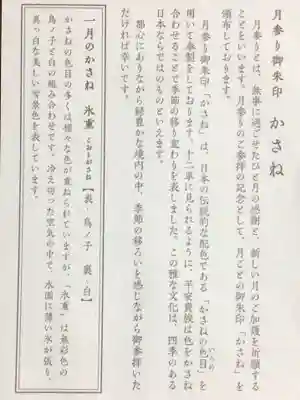 月参り御朱印　かさね
月参りとは、無事に過ごせたひと月の感謝と、新しい月のご加護を祈願する
ことをいいます。月参りのご参拝の記念として、月ごとの御朱印「かさね」を
頒布しております。
月参り御朱印「かさね」は、日本の伝統的な配色である「かさねの色目」を
いろめ
用いて奉製をしております。十二単に見られるように、平安貴族は色をかさね
合わせることで季節の移り変わりを表しました。この雅な文化は、四季のある
日本ならではのものといえます。
都心にありながら緑豊かな境内の中、季節の移ろいを感じながら御参拝いた
だければ幸いです。
一月のかさね　氷重 こおりがさね【表　鳥ノ子　裏　白】
かさねの色目の多くは様々な色が重ねられていますが、「氷重」は無彩色の
鳥ノ子と白の組み合わせです。冷え切った空気の中で、水面に薄い氷が張り、
真っ白な美しい雪景色を表しています。